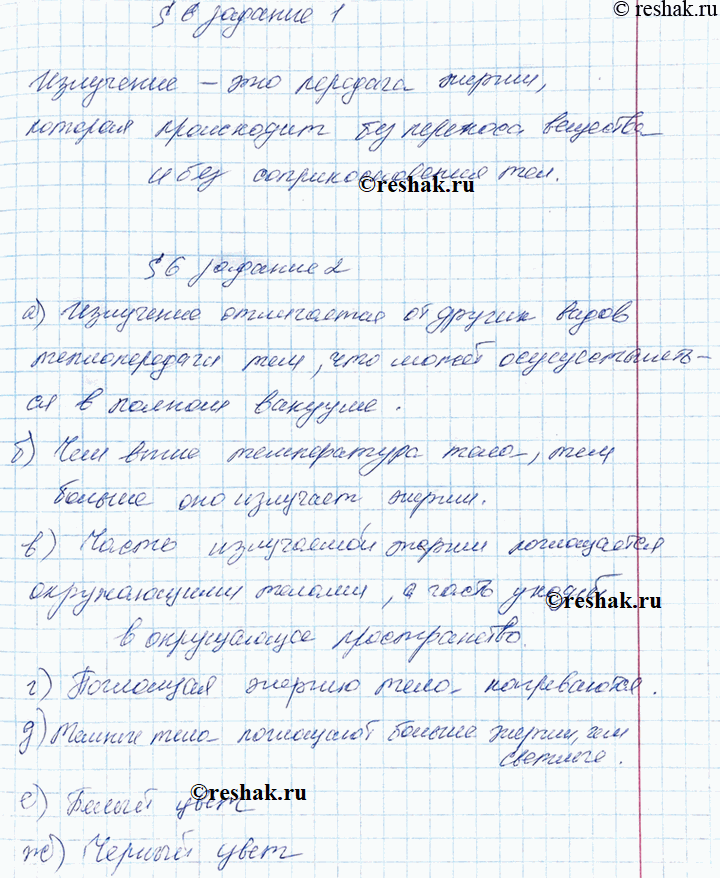 © reshak.ru
§ 6 задание 1
Излучение – это передача энергии,
которая происходит без переноса вещества
и без соприкосновения тел.
©reshak.ru
§ 6 задание 2
а) Излучение отличается от других видов
теплопередачи тем, что может осуществлять-
ся в полном вакууме.
б) Чем выше температура тела, тем
больше оно излучает энергии.
в) Часть излучаемой энергии поглощается
окружающими телами, а часть уходит
©reshak.ru
в окружающее пространство.
г) Поглощая энергию тела нагреваются.
д) Темные тела поглощают больше энергии, чем
светлые.
©reshak.ru
е) Белый цвет
ж) Черный цвет